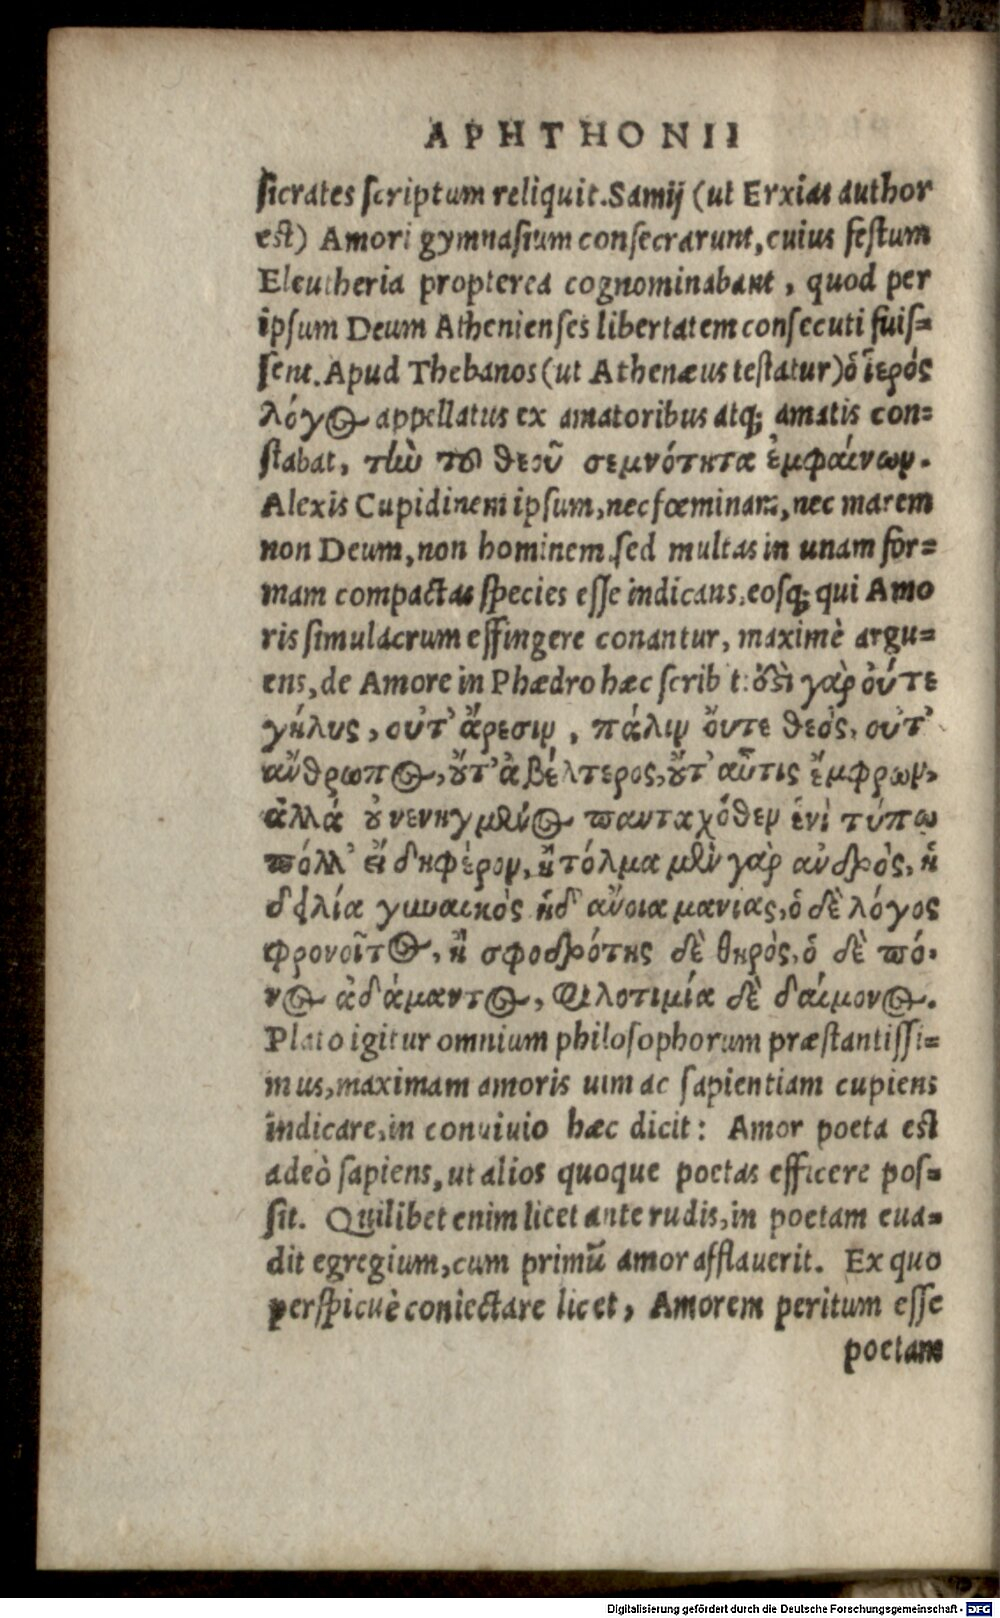 APHTHONII
sicrates scriptum reliquit. Samij (ut Erxias author
est) Amori gymnasium consecrarunt, cuius festum
Eleutheria propterea cognominabant, quod per
ipsum Deum Athenienses libertatem consecuti fuis=
sent. Apud Thebanos (ut Athenæus testatur) ὁ ἱερός
λόγος appellatus ex amatoribus atq; amatis con=
stabat, τὴν τοῦ θεοῦ σεμνότητα ἐμφαίνων.
Alexis Cupidinem ipsum, nec fœminam, nec marem
non Deum, non hominem sed multas in unam for=
mam compactas species esse indicans, eosq; qui Amo
ris simulacrum effingere conantur, maximè argu=
ens, de Amore in Phædro hæc scrib t: ὅδεὶ γὰρ οὔτε
γήλυς, οὐτ' ἄρεσιν, πάλιν ὄυτε θεός, οὐτ'
ἄνθρωπος, ὄυτ' ἀβέλτερος, ὄυτ' αὖτις ἔμφρων,
ἀλλά ὀυνενηγμένος πανταχόθεν ἑνὶ τύπω
πόλλ' εἴδη φέρον, ἡ τόλμα μὲν γὰρ ανδρὸς, ἡ
δειλία γυναικὸς ἡδ' ἄνοια μανιας, ὁ δὲ λόγος
φρονοῖτος, ἡ σφοδρότης δὲ θηρὸς, ὁ δὲ πό-
νος ἀδάμαντος, Φιλοτιμία δὲ δαίμονος.
Plato igitur omnium philosophorum præstantissi=
mus, maximam amoris uim ac sapientiam cupiens
indicare, in conuiuio hæc dicit: Amor poeta est
adeò sapiens, ut alios quoque poetas efficere pos=
sit. Quilibet enim licet ante rudis, in poetam eua=
dit egregium, cum primũ amor afflauerit. Ex quo
perspicuè coniectare licet, Amorem peritum esse
poetam
Digitalisierung gefördert durch die Deutsche Forschungsgemeinschaft - DFG